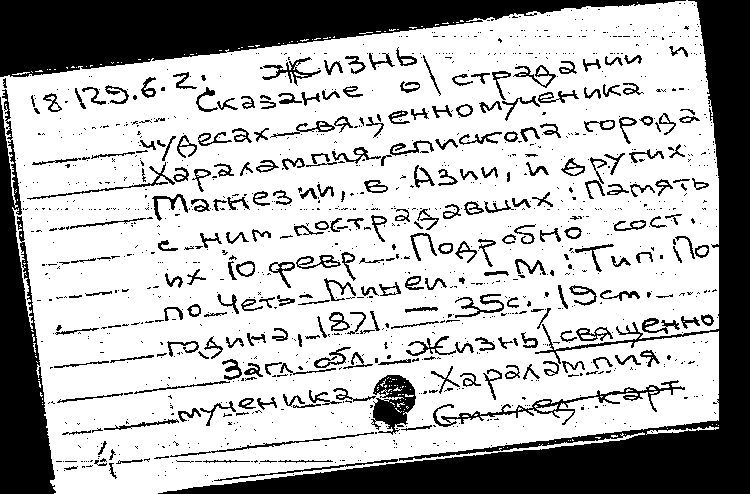 18.129.6.2. Жизнь
Сказание о страдании и
чудесах священномученика
Харалампия, епископа города
Магнезии, в Азии, и других
с ним пострадавших : Память
их 10 февр. : Подробно сост.
по Четь-Минеи. – М. : Тип. По-
година, 1871. – 35с. ; 19см.
Загл. обл.: Жизнь священно
мученика Харалампия.
См. след. карт.
4